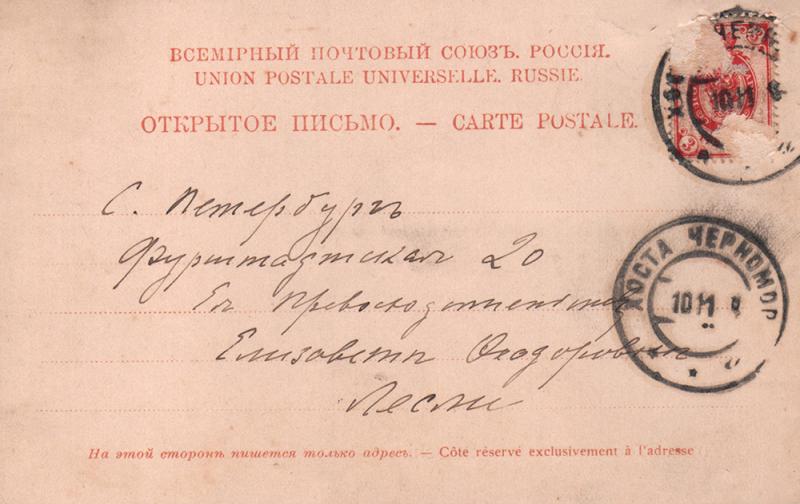 ВСЕМІРНЫЙ ПОЧТОВЫЙ СОЮЗЪ. РОССІЯ.
UNION POSTALE UNIVERSELLE. RUSSIE.
ОТКРЫТОЕ ПИСЬМО. — CARTE POSTALE.
3
С. Петербургъ
Фурштадтская 20
Ея Превосходительству
Елизаветѣ Ѳеодоровнѣ
Лесли
ХОСТА ЧЕРНОМОР
На этой сторонѣ пишется только адресъ. — Côte réservé exclusivement à l'adresse